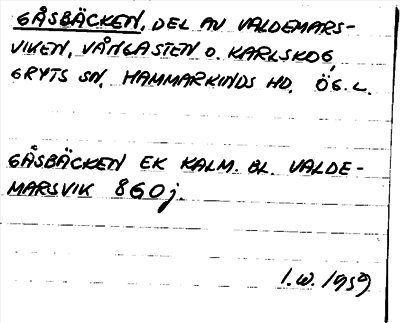 GÅSBÄCKEN, DEL AV VALDEMARS-
VIKEN, VÅNGASTEN O. KARLSKOG,
GRYTS SN, HAMMARKINDS HD, ÖG. L.
GÅSBÄCKEN EK KALM. BL. VALDE-
MARSVIK 8G0j.
I.W. 1959